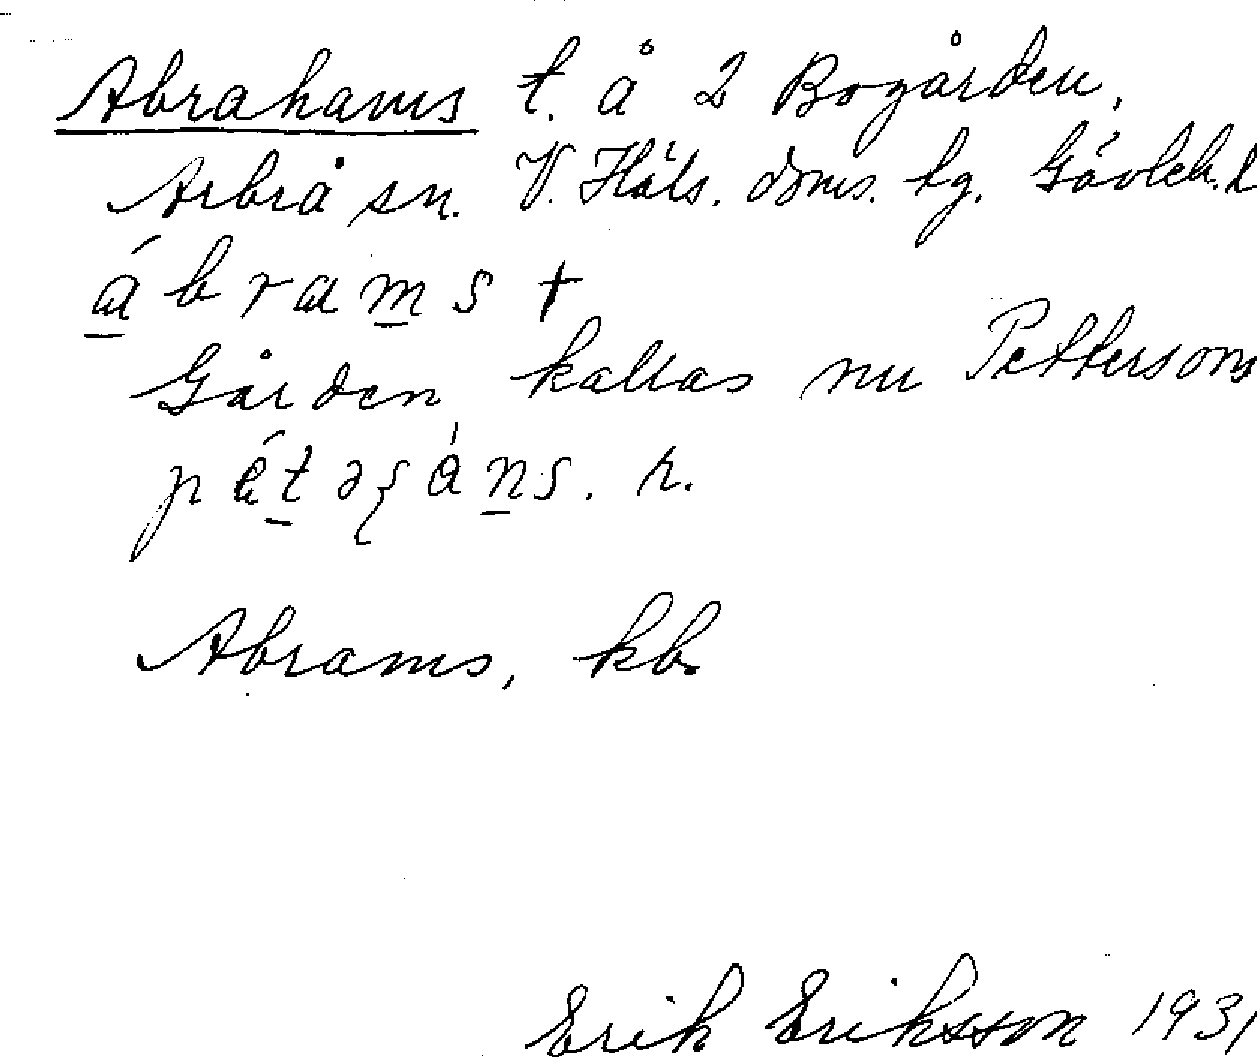 Abrahams t. å 2 Bogården,
Arbrå sn. V. Häls. doms. tg. Gävleb. l
ábrams †
Gården kallas nu Pettersons
pétəʂáns. r.
Abrams, kb.
Erik Eriksson 1931